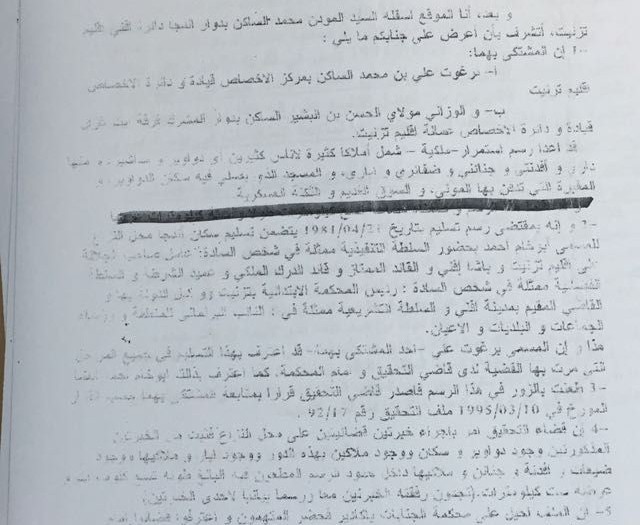 و بعد، أنا الموقع أسفله السيد المودن محمد الساكن بدوار انجا دائرة إفني إقليم
تزنيت، أتشرف بأن أعرض على جنابكم ما يلي :
1- إن المشتكى بهما:
أ- برغوت علي بن محمد الساكن بمركز الاخصاص قيادة و دائرة الاخصاص
إقليم تزنيت
ب- و الوزاني مولاي الحسن بن البشير الساكن بدوار المشرك فرقة
قيادة و دائرة الاخصاص عمالة إقليم تزنيت.
قد اعدا رسم استمرار-ملكية - شمل أملاكا كثيرة لأناس كثيرين أي دواوير و
داري و أفدنتي و جنانتي و ضفائري و اباري، و المسجد الذي يصلي فيه سكان الدواوير، و
المقبرة التي تدفن بها الموتى، و السوق القديم و الثكنة العسكرية
2- و إنه بمقتضى رسم تسليم بتاريخ 1981/04/21 يتضمن تسليم سكان انجا محل
للمسمى ابرخام احمد بحضور السلطة التنفيذية ممثلة في شخص السادة: عامل صاحب الجلالة
على إقليم تزنيت و باشا إفني و القائد الممتاز و قائد الدرك الملكي و عميد الشرطة و السلطة
القضائية ممثلة في شخص السادة : رئيس المحكمة الابتدائية بتزنيت و وكيل الدولة بها و
القاضي المقيم بمدينة إفني و السلطة التشريعية ممثلة في : النائب البرلماني للمنطقة و رؤساء
الجماعات و البلديات و الاعيان.
هذا و إن المسمى برغوت علي -احد المشتكى بهما- قد اعترف بهذا التسليم في جميع المراحل
التي مرت بها القضية لدى قاضي التحقيق و امام المحكمة، كما اعترف بذلك
3- طعنت بالزور في هذا الرسم فاصدر قاضي التحقيق قرارا بمتابعة المشتكى بهما
المورخ في 1995/03/10 ملف التحقيق رقم 92/17.
4- إن قضاء التحقيق امر بإجراء خبرتين قضائيتين على محل النزاع
المذكورتين وجود دواوير و سكان ووجود ملاكين بهذه الدور ووجود ابار و ملاكيها ووجود
و أفدنة و جنان و ملاكيها داخل حدود الرسم المطعون فيه البالغ طوله
عرضه ست كيلومترات. (تجدون رفقته الخبرتين معا ورسما بيانيا لاحدى الخبرتين)
5- ان الملف احيل على محكمة الجنايات باكادير فحضر المتهمون و اعترفوا